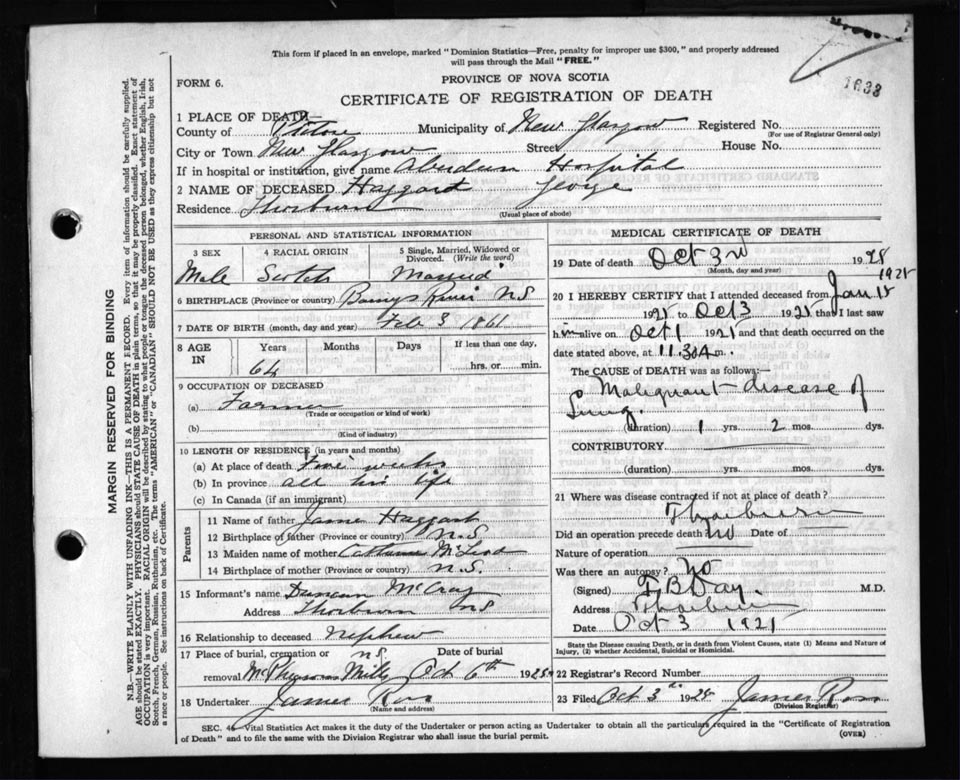 This form if placed in an envelope, marked "Dominion Statistics—Free, penalty for improper use $300," and properly addressed
will pass through the Mail "FREE."
1633
FORM 6.
PROVINCE OF NOVA SCOTIA
CERTIFICATE OF REGISTRATION OF DEATH
1 PLACE OF DEATH—
County of Pictou Municipality of New Glasgow Registered No.
(For use of Registrar General only)
City or Town New Glasgow Street House No.
If in hospital or institution, give name Aberdeen Hospital
2 NAME OF DECEASED Haggart George
Residence Thorburn
(Usual place of abode)
PERSONAL AND STATISTICAL INFORMATION
3 SEX 4 RACIAL ORIGIN 5 Single, Married, Widowed or
Divorced. (Write the word)
Male Scotch Married
6 BIRTHPLACE (Province or country) Barneys River N S
7 DATE OF BIRTH (month, day and year) Feb 3 1861
8 AGE IN Years Months Days If less than one day,
64 hrs. or min.
9 OCCUPATION OF DECEASED
(a) Farmer
(Trade or occupation or kind of work)
(b)
(Kind of industry)
10 LENGTH OF RESIDENCE (in years and months)
(a) At place of death weeks
(b) In province all his life
(c) In Canada (if an immigrant)
Parents
11 Name of father James Haggart
12 Birthplace of father (Province or country) N.S
13 Maiden name of mother Catherine McLeod
14 Birthplace of mother (Province or country) N.S.
15 Informant's name Duncan McCray
Address Thorburn NS
16 Relationship to deceased Nephew
17 Place of burial, cremation or removal N.S. Date of burial
McPhersons Mills Oct 6th 1925
18 Undertaker James Ross
(Name and address)
MEDICAL CERTIFICATE OF DEATH
19 Date of death Oct 3rd 1925
(Month, day and year)
20 I HEREBY CERTIFY that I attended deceased from Jan 15 1925
1925 to Oct 3 1925 that I last saw
him alive on Oct 1 1925 and that death occurred on the
date stated above, at 11.30 A m.
The CAUSE OF DEATH was as follows:—
Malignant disease of
Lung.
(duration) 1 yrs. 2 mos. dys.
CONTRIBUTORY
(duration) yrs. mos. dys.
21 Where was disease contracted if not at place of death?
Thorburn
Did an operation precede death? No Date of
Nature of operation
Was there an autopsy? No
(Signed) B Day. M.D.
Address Thorburn
Date Oct 3 1925
State the Disease causing Death, or in death from Violent Causes, state (1) Means and Nature of
Injury, (2) whether Accidental, Suicidal or Homicidal.
22 Registrar's Record Number
23 Filed Oct 3rd 1925 James Ross
(Division Registrar)
SEC. 46—Vital Statistics Act makes it the duty of the Undertaker or person acting as Undertaker to obtain all the particulars required in the "Certificate of Registration
of Death" and to file the same with the Division Registrar who shall issue the burial permit.
(OVER)
MARGIN RESERVED FOR BINDING
N.B.—WRITE PLAINLY WITH UNFADING INK—THIS IS A PERMANENT RECORD. Every item of information should be carefully supplied.
AGE should be stated EXACTLY. PHYSICIANS should STATE CAUSE OF DEATH in plain terms, so that it may be properly classified. Exact statement of
OCCUPATION is very important. RACIAL ORIGIN will be described by stating to what people or tongue the deceased person belonged, whether English, Irish,
Scotch, French, German, Russian, Ruthenian, etc. The terms "AMERICAN" or "CANADIAN" SHOULD NOT BE USED as they express citizenship but not
a race or people. See instructions on back of Certificate.